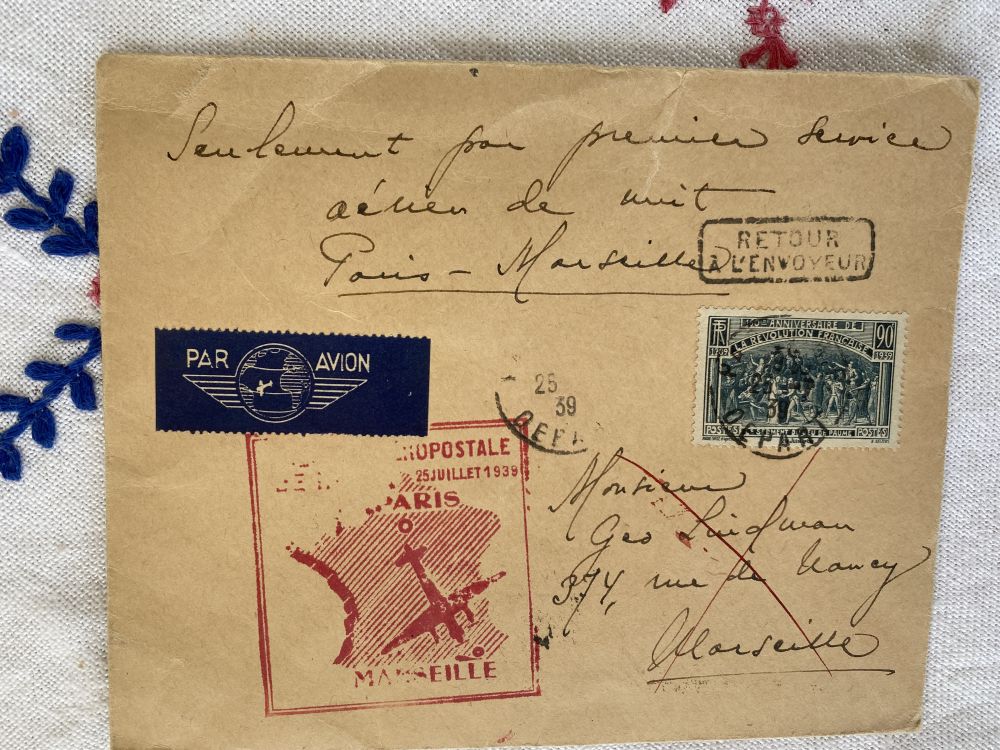 Seulement par premier service
aérien de nuit
Paris - Marseille
RETOUR
A L'ENVOYEUR
PAR AVION
150me ANNIVERSAIRE DE
LA REVOLUTION FRANÇAISE
90
1789
1939
POSTES
SERMENT DU JEU DE PAUME
POSTES
25
39
DEPART
ROPOSTALE
25 JUILLET 1939
PARIS
MARSEILLE
Monsieur
Geo Lindman
374, rue de Nancy
Marseille